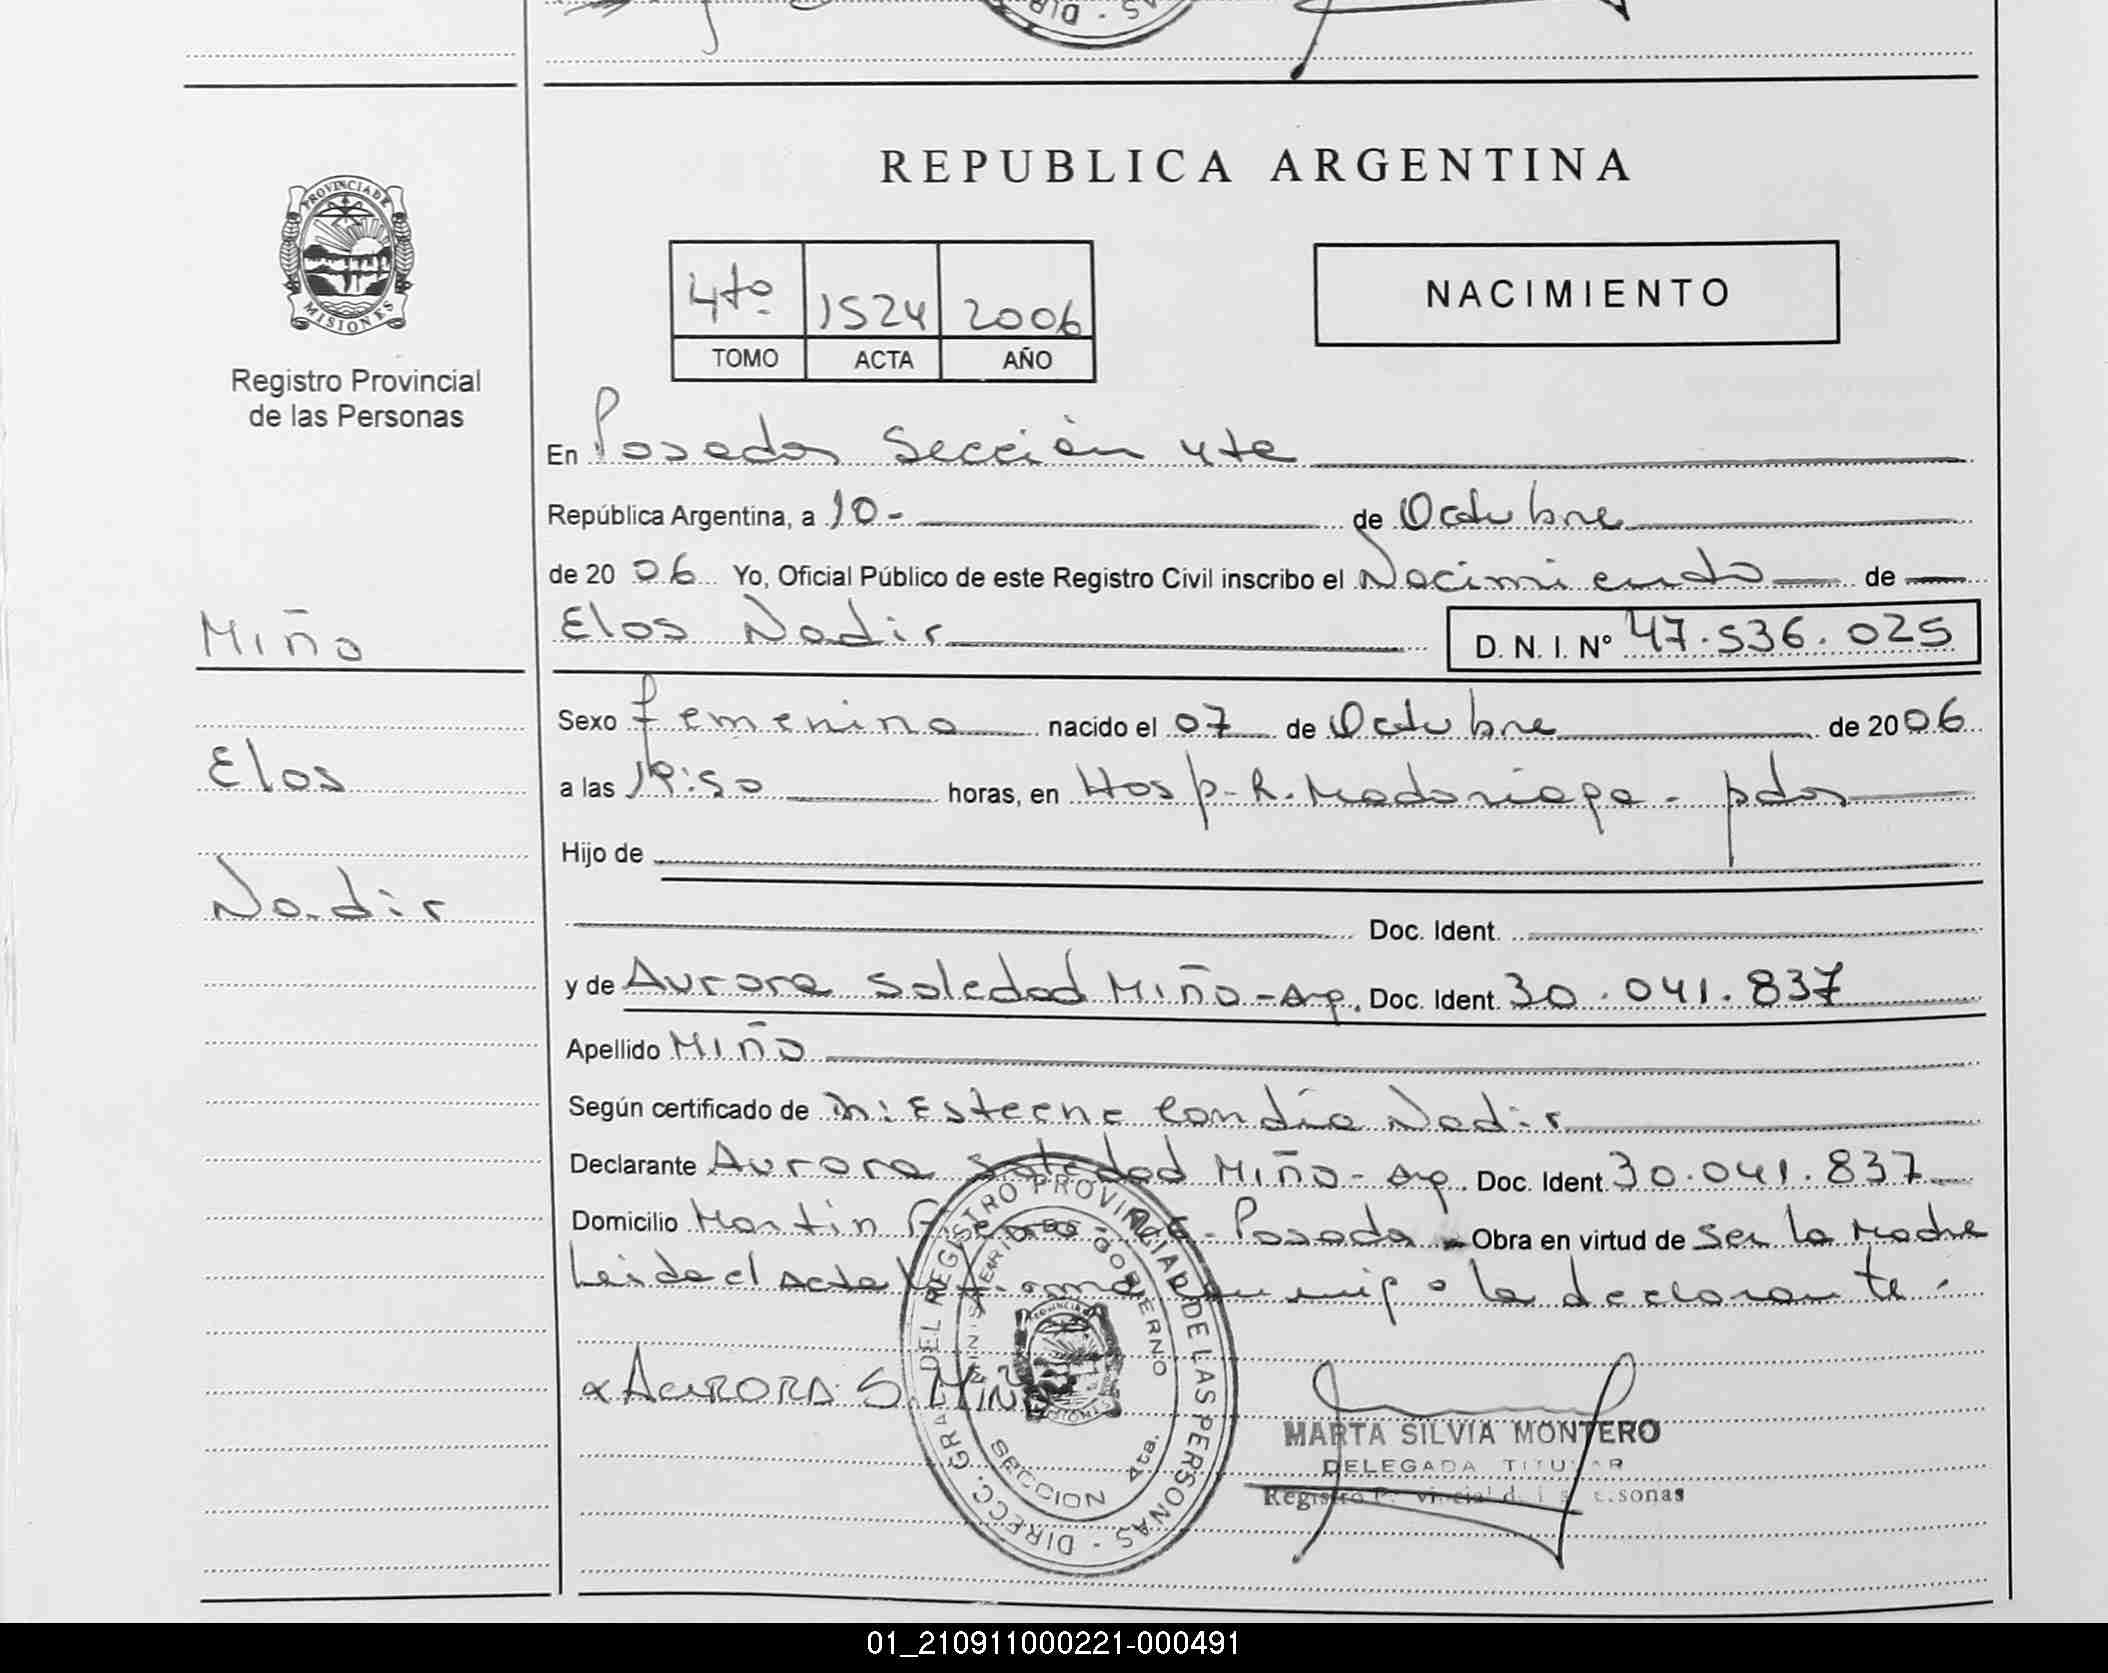 REPUBLICA ARGENTINA
PROVINCIA DE
MISIONES
Registro Provincial
de las Personas
4to 1524 2006
TOMO ACTA AÑO
NACIMIENTO
En Posadas Sección 4ta
República Argentina, a 10- de Octubre
de 20 06 Yo, Oficial Público de este Registro Civil inscribo el Nacimiento de
Elos Nadir D. N. I. Nº 47.536.025
Miño
Elos
Nadir
Sexo femenino nacido el 07 de Octubre de 20 06
a las 19:50 horas, en Hosp. R. Madariaga - pdas
Hijo de
Doc. Ident.
y de Aurora Soledad Miño - Arg. Doc. Ident. 30.041.837
Apellido Miño
Según certificado de Nadir
Declarante Aurora Soledad Miño - Arg. Doc. Ident. 30.041.837
Domicilio Martin Posadas - Obra en virtud de ser la Madre
Leida el Acta la declarante.
AURORA S. MIÑO
DIRECC. GRAL. DEL REGISTRO PROVINCIAL DE LAS PERSONAS
MINISTERIO DE GOBIERNO
SECCION 4ta.
MARTA SILVIA MONTERO
DELEGADA TITULAR
Registro
01_210911000221-000491